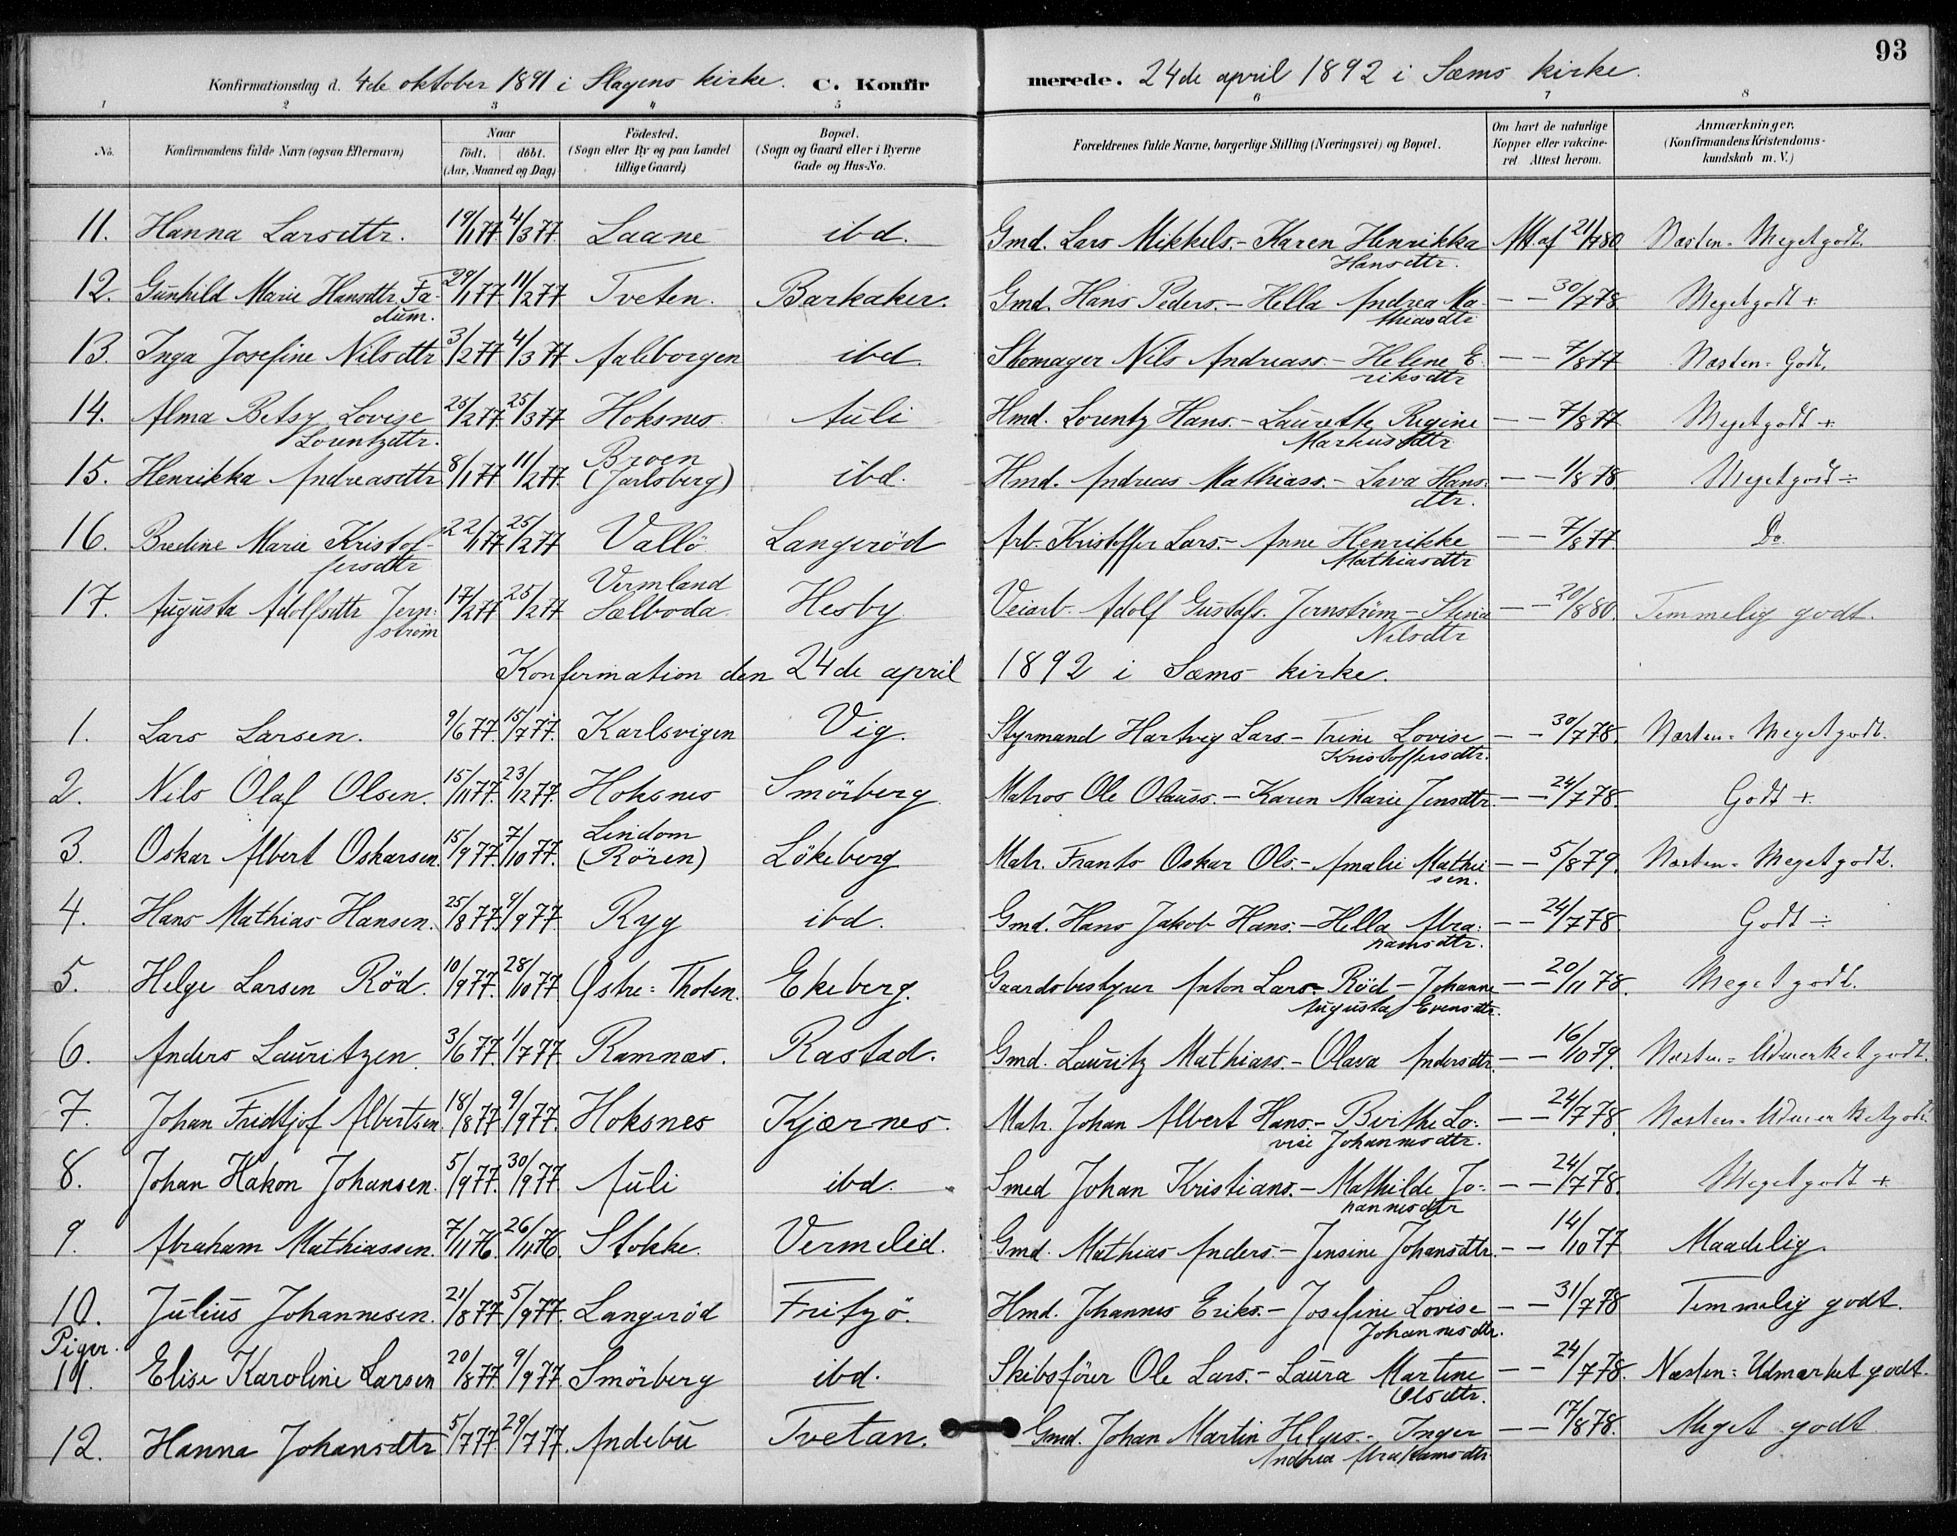 93
Konfirmationsdag d. 4de oktober 1891 i Slagens kirke. C. Konfirmerede. 24de april 1892 i Sæms kirke.
1 2 3 4 5 6 7 8
No. Konfirmandens fulde Navn (ogsaa Efternavn) Naar födt. döbt. (Aar, Maaned og Dag) Födested. (Sogn eller By og paa Landet tillige Gaard) Bopæl. (Sogn og Gaard eller i Byerne Gade og Hus-No. Forældrenes fulde Navne, borgerlige Stilling (Næringsvei) og Bopæl. Om havt de naturlige Kopper eller vakcineret Attest herom. Anmærkninger. (Konfirmandens Kristendomskundskab m. V.)
11. Hanna Larsdttr. 19/1 77 4/3 77 Laane ibd. Gmd. Lars Mikkels. - Karen Henrikka Att. af 21/7 80 Næsten = Meget godt.
Hansdttr.
12. Gunhild Marie Hansdttr Fa- 29/1 77 11/2 77 Tveten. Barkaker. Gmd. Hans Peders. - Hella Andrea Ma- — — 30/7 78. Meget godt +
dum. thiasdtr
13. Inga Josefine Nilsdttr 3/2 77 4/3 77 Aaleborgen ibd. Skomager Nils Andreass. - Helene E- — — 7/8 77 Næsten = Godt.
riksdttr
14. Alma Betsy Lovise 25/2 77 25/3 77 Hoksnes Auli Hmd. Lorentz Hans. - Laurette Regine — — 7/8 77 Meget godt +
Lorentzdttr. Markusdttr
15. Henrikka Andreasdttr 8/1 77 11/2 77 Broen (Jarlsberg) ibd. Hmd. Andreas Mathiass. - Lava Hans- — — 1/8 78. Meget godt ÷
dtr.
16. Bredine Marie Kristof- 22/1 77 25/2 77 Vallö Langeröd Arb. Kristoffer Lars. - Anne Henrikke — — 7/8 77. Do
fersdttr Mathiasdttr
17. Augusta Adolfsdttr Jern- 17/2 77 25/2 77 Vermland Sælboda. Hesby Veiarb. Adolf Gustafs. Jernström - Stina — — 20/8 80. Temmelig godt.
ström Nilsdttr
Konfirmation den 24de april 1892 i Sæms kirke.
1. Lars Larsen. 9/6 77. 15/7 77. Karlsvigen Vig. Styrmand Hartvig Lars - Trine Lovise — — 30/7 78. Næsten = Meget godt.
Kristoffersdttr.
2. Nils Olaf Olsen. 15/11 77. 23/12 77. Hoksnes Smörberg Matros Ole Olauss. - Karen Marie Jensdttr — — 24/7 78. Godt +
3. Oskar Albert Oskarsen. 15/9 77. 7/10 77. Lindom (Rören) Lökeberg Matr. Frants Oskar Ols. - Amalie Mathi- — — 5/8 79. Næsten = Meget godt.
sen.
4. Hans Mathias Hansen. 25/8 77. 9/9 77 Ryg ibd. Gmd. Hans Jakob Hans. - Hella Abra- — — 24/7 78. Godt ÷
hamsdttr.
5. Helge Larsen Röd. 10/9 77. 28/10 77 Østre = Thoten. Ekeberg. Gaardsbestyrer Anton Lars. Röd - Johanne — — 20/11 78. Meget godt.
Augusta Evensdttr.
6. Anders Lauritzen. 3/6 77 1/7 77. Ramnæs. Rastad. Gmd. Lauritz Mathiass. - Olava Andersdttr. — — 16/10 79. Næsten = Udmerket godt.
7. Johan Fredtjof Albertsen 18/8 77 9/9 77. Hoksnes Kjærnes. Matr. Johan Albert Hans. - Birthe Lo- — — 24/7 78. Næsten = Udmerket godt
vise Johannesdttr.
8. Johan Hakon Johansen. 5/9 77. 30/9 77 Auli ibd. Smed Johan Kristians. - Mathilde Jo- — — 24/7 78. Meget godt +
hannesdttr
9. Abraham Mathiassen. 7/11 76. 26/11 76. Stokke. Vermelid. Gmd. Mathias Anders - Jensine Johansdttr. — — 14/10 77 Maadelig.
10. Julius Johannesen. 21/8 77. 5/9 77. Langeröd Fritzö. Hmd. Johannes Eriks. - Josefine Lovise — — 31/7 78 Temmelig godt.
Johannesdtr.
Piger.
11. Elise Karoline Larsen 20/8 77. 9/9 77. Smörberg ibd. Skibsförer Ole Lars. - Laura Martine — — 24/7 78. Næsten = Udmærket godt.
Olsdttr.
12. Hanna Johansdttr 5/7 77. 29/7 77. Andebu Tvetan. Gmd. Johan Martin Helges. - Inger — — 17/8 78. Meget godt
Andrea Abrahamsdttr